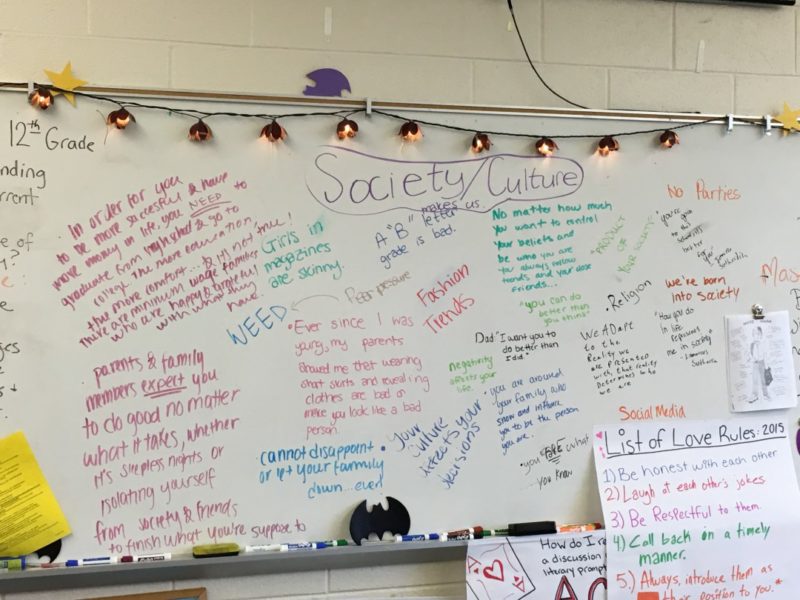 12th Grade
nding
rrent
e of
y?
e:
ges
s
Society/Culture
makes us.
In order for you
to be more sucessful & have
more money in life, you NEED to
graduate from highschool & go to
college. The more education,
the more comfort... is it not true!
There are minimum wage families
who are happy & grateful
with what they
have.
Girls in
magazines
are skinny.
A "B" letter
grade is bad.
No matter how much
you want to control
your beliefs and
be who you are
you always follow
trends and your close
friends...
"PRODUCT
OF
YOUR SOCIETY"
No Parties
"you're good
to that
somewhat
better
for
NEED
Peer pressure
Fashion
Trends
"you can do
better than
you think"
• Religion
we're born
into society
Mas
"How you do
in life
me in society"
• Ever since I was
young, my parents
showed me that wearing
short skirts and revealing
clothes are bad or
make you look like a bad
person.
Dad "I want you to
do better than
I did."
We ADApt
to the
Reality we
are presented
with, that reality
Determines who
we are
negativity
affects your
life.
parents & family
members expect you
to do good no matter
what it takes, whether
it's sleepless nights or
isolating yourself
from society & friends
to finish what you're suppose to
cannot disappoint
or let your fammily
down...ever
• Your
culture
affects your
decisions
• you are around
your family who
show and influence
you to be the person
you are.
• you are what
you know
Social Media
List of Love Rules: 2015
1) Be honest with each other
2) Laugh at each other's jokes
3) Be Respectful to them.
4) Call back in a timely
manner.
5.) Always, introduce them as
their position to you.*
How do I re
a discussion
literary prompt